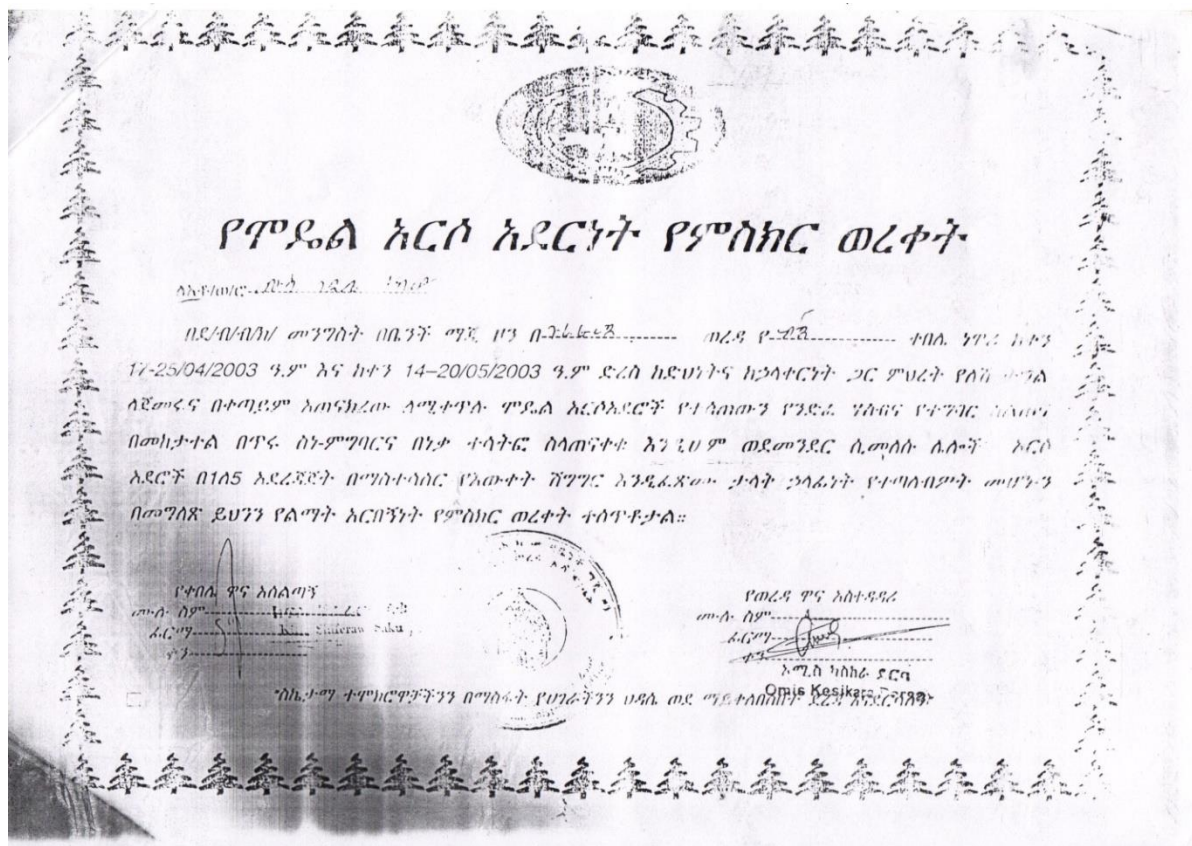 የሞዴል አርሶ አደርነት የምስክር ወረቀት
ለአቶ/ወ/ሮ
በደ/ብ/ብ/ህ/ መንግስት በቤንች ማጂ ዞን በ ወረዳ የ ቀበሌ ነዋሪ ከቀን
17-25/04/2003 ዓ.ም እና ከቀን 14–20/05/2003 ዓ.ም ድረስ ከድህነትና ከኃላቀርነት ጋር ምህረት የለሽ ትግል
ለጀመሩና በቀጣይም አጠናክረው ለሚቀጥሉ ሞዴል አርሶአደሮች የተሰጠውን የንድፈ ሃሰብና የተግባር ስልጠና
በመከታተል በጥሩ ስነ-ምግባርና በነቃ ተሳትፎ ስላጠናቀቁ እንዲሁም ወደመንደር ሲመለሱ ሌሎች አርሶ
አደሮች በ1ለ5 አደረጃጀት በማስተሳሰር የእውቀት ሽግግር እንዲፈጽሙ ታላት ኃላፊነት የተጣለብዎት መሆኑን
በመግለጽ ይህንን የልማት አርበኝነት የምስክር ወረቀት ተሰጥቶታል።
የቀበሌ ዋና አሰልጣኝ
ሙሉ ስም
ፊርማ
ቀን
የወረዳ ዋና አስተዳዳሪ
ሙሉ ስም
ፊርማ
ቀን
ኦሚስ ካስከራ ደርባ
Omis Kesikara
ስኬታማ ተሞክሮዎቻችንን በማስፋት የሀገራችንን ህዳሴ ወደ ማይቀለበስበት ደረጃ እናደርሳለን